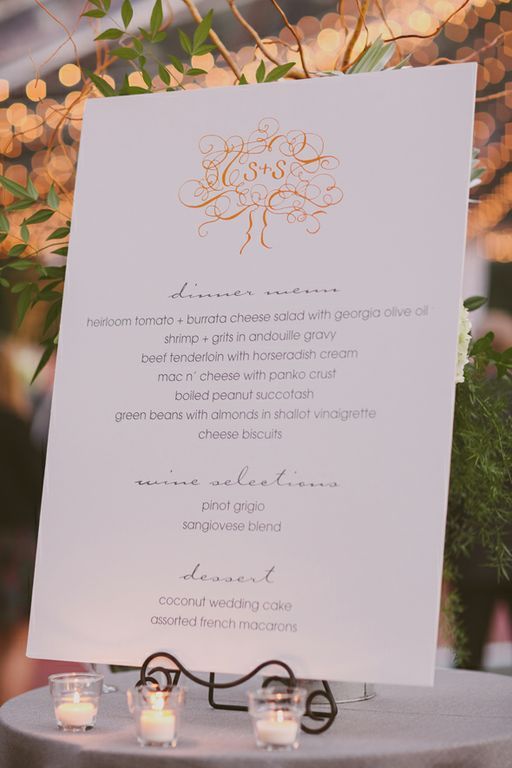 S+S
dinner menu
heirloom tomato + burrata cheese salad with georgia olive oil
shrimp + grits in andouille gravy
beef tenderloin with horseradish cream
mac n' cheese with panko crust
boiled peanut succotash
green beans with almonds in shallot vinaigrette
cheese biscuits
wine selections
pinot grigio
sangiovese blend
dessert
coconut wedding cake
assorted french macarons